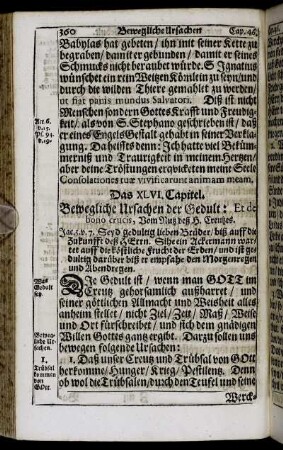 360 Bewegliche Ursachen Cap. 46.
Babylas hat gebeten / ihn mit seiner Kette zu
begraben / damit er gebunden / damit er seines
Schmucks nicht beraubet würde. S. Ignatius
wünschet ein rein Weitzen Körnlein zu seyn / und
durch die wilden Thiere gemahlet zu werden /
ut fiat panis mundus Salvatori. Diß ist nicht
Menschen sondern Gottes Krafft und Freudig-
keit / als von S. Stephano geschrieben ist / daß
er eines Engels Gestalt gehabt in seiner Verkla-
gung. Da heissts denn: Ich hatte viel Beküm-
merniß und Traurigkeit in meinem Hertzen /
aber deine Tröstungen erquickten meine Seele
Consolationes tuæ vivificarunt animam meam.
Act. 6.
v. 15.
Pf. 94.
v. 19.
Das XLVI. Capitel.
Bewegliche Ursachen der Gedult: Et de
bono crucis, Vom Nutz deß H. Creutzes.
Jac. 5. v. 7. Seyd gedultig lieben Brüder / biß auff die
Zukunfft deß HErrn. Sihe ein Ackermann war-
tet auff die köstliche Frucht der Erden / und ist ge-
dultig darüber biß er empfahe den Morgenregen
und Abendregen.
Was
Gedult
sey.
DIe Gedult ist / wenn man GOTT im
Creutz gehorsamlich außharret / und
seiner göttlichen Allmacht und Weisheit alles
anheim stellet / nicht Ziel / Zeit / Maß / Weise
und Ort fürschreibet / und sich dem gnädigen
Willen Gottes gantz ergibt. Darzu sollen uns
bewegen folgende Ursachen:
Beweg-
liche Ur-
sachen.
1.
Trübsal
kommen
von
GOtt.
1. Daß unser Creutz und Trübsal von GOtt
herkomme / Hunger / Krieg / Pestilentz. Denn
ob wol die Trübsalen / durch den Teufel und seine
Werck-